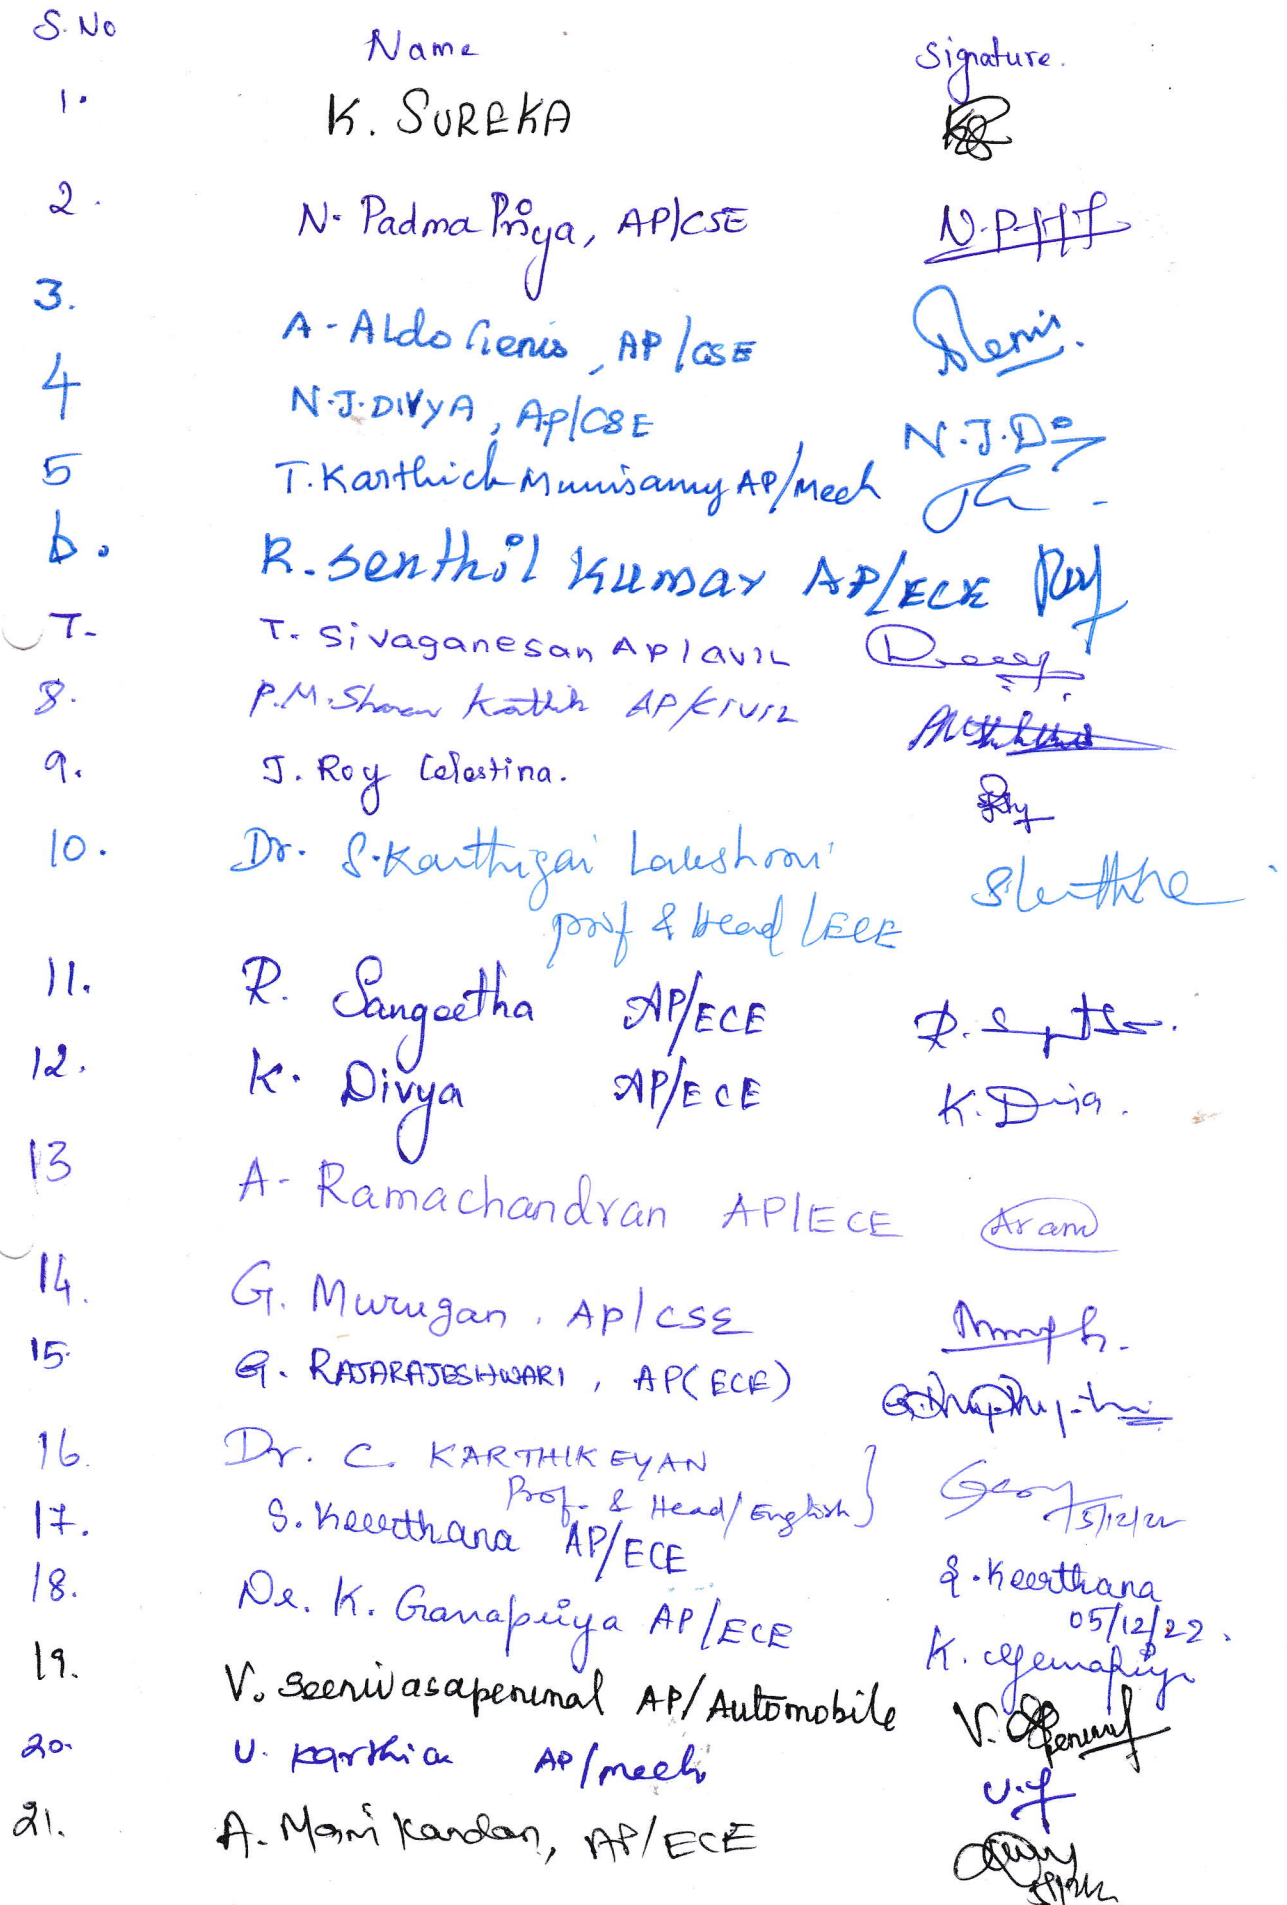 S. No Name Signature.
1. K. SUREKA
2. N. Padma Priya, AP/CSE N.P
3. A. Aldo Jenis, AP/CSE
4 N.J. DIVYA, AP/CSE N.J.Di
5 T. Karthick Munisamy AP/Mech
6. R. Senthil Kumar AP/ECE
7. T. Sivaganesan AP/CIVIL
8. P.M. Sharan Kathik AP/CIVIL
9. J. Roy Celestina. Roy
10. Dr. S. Karthigai Lakshmi
prof & Head/ECE
11. R. Sangeetha AP/ECE R.
12. K. Divya AP/ECE K. Divya.
13 A. Ramachandran AP/ECE Aram
14. G. Murugan, AP/CSE
15. G. RAJARAJESHWARI, AP(ECE)
16. Dr. C. KARTHIKEYAN
Prof. & Head/English 5/12/22
17. S. Keerthana AP/ECE S. Keerthana
05/12/22.
18. Dr. K. Ganapriya AP/ECE K. Ganapriya
19. V. Seenivasaperumal AP/Automobile V.
20. U. Karthic AP/mech U.
21. A. Manikandan, AP/ECE